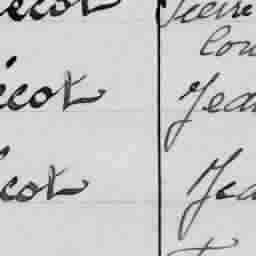 écot Pierre
Lou
écot Jea
écot Jea